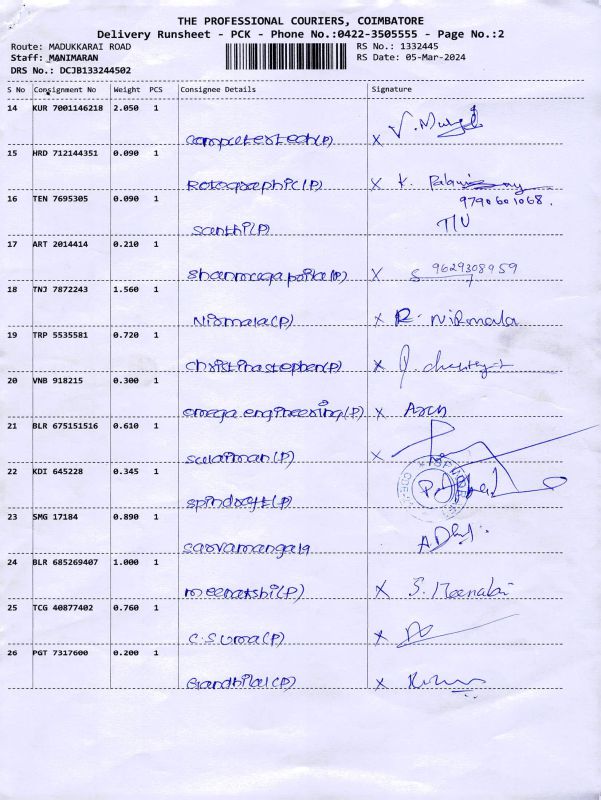 THE PROFESSIONAL COURIERS, COIMBATORE
Delivery Runsheet - PCK - Phone No.:0422-3505555 - Page No.:2
Route: MADUKKARAI ROAD RS No.: 1332445
Staff: MANIMARAN RS Date: 05-Mar-2024
DRS No.: DCJB133244502
S No Consignment No Weight PCS Consignee Details Signature
14 KUR 7001146218 2.050 1
computertech(P) X
15 HRD 712144351 0.090 1
Rotographic(P) X K.
16 TEN 7695305 0.090 1 9790601068.
santhi(P) T/V
17 ART 2014414 0.210 1
(P) X S 9629308959
18 TNJ 7872243 1.560 1
Nirmala(P) X R. Nirmala
19 TRP 5535581 0.720 1
christhastephen(P) X
20 VNB 918215 0.300 1
omega engineering(P) X Arun
21 BLR 675151516 0.610 1
sulaiman(P) X
22 KDI 645228 0.345 1
(P)
23 SMG 17184 0.890 1
sarvamangala
24 BLR 685269407 1.000 1
meenakshi(P) X S. Meenakshi
25 TCG 40877402 0.760 1
C.Suma(P) X
26 PGT 7317600 0.200 1
Gandhilal(P) X